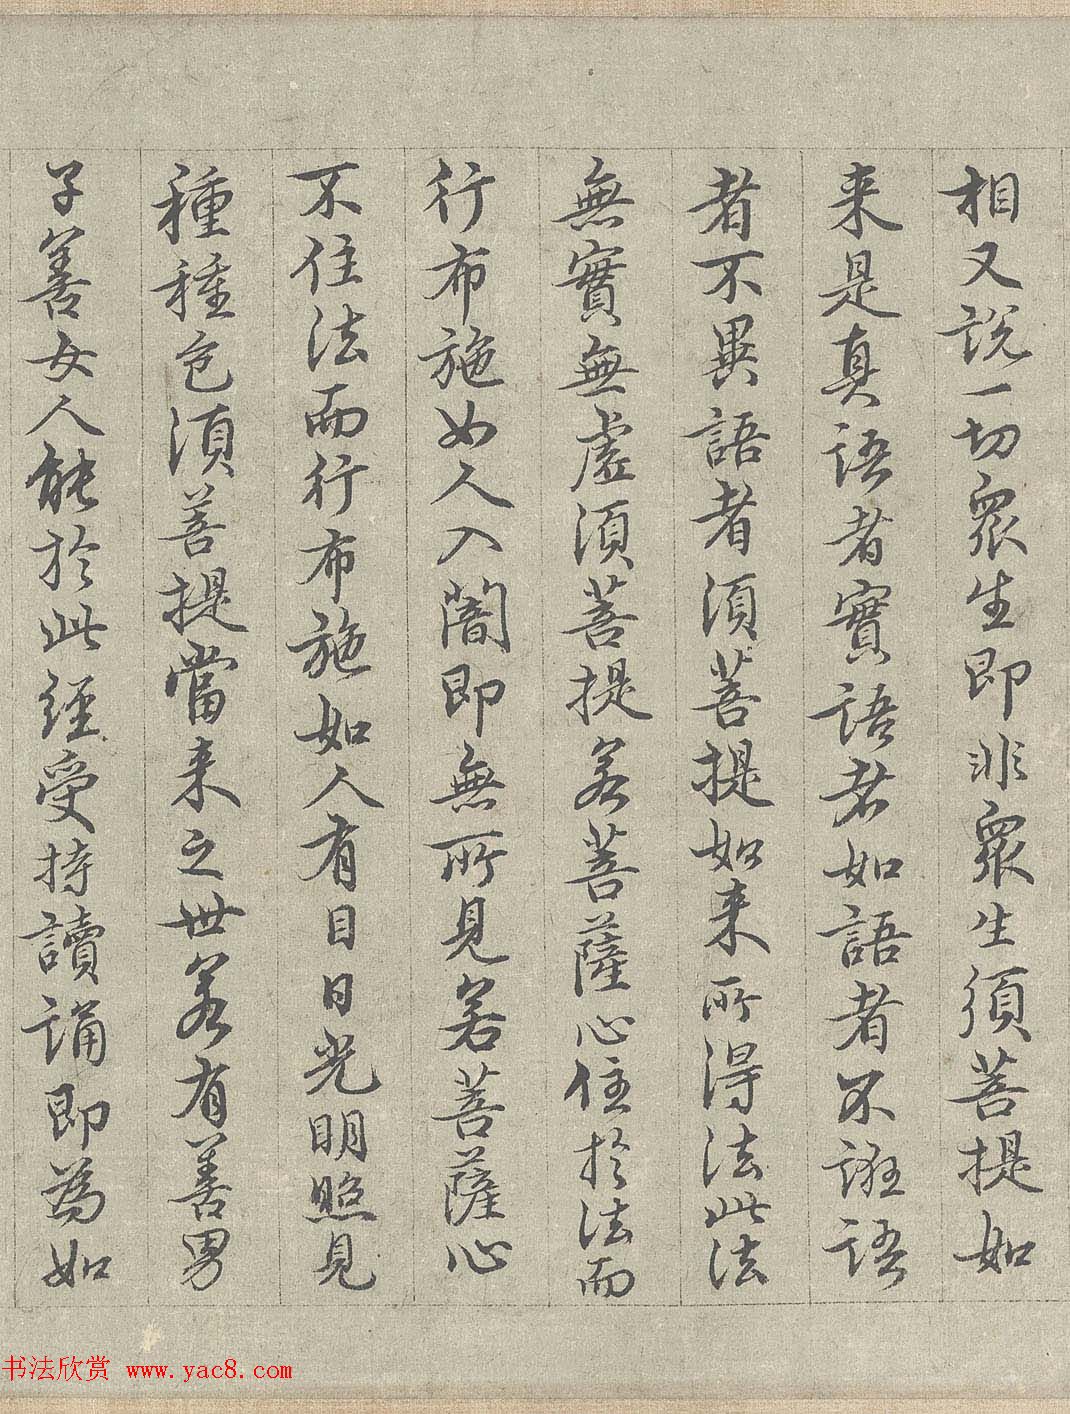 相又說一切眾生即非眾生須菩提如
来是真語者實語者如語者不誑語
者不異語者須菩提如来所得法此法
無實無虛須菩提若菩薩心住於法而
行布施如人入闇即無所見若菩薩心
不住法而行布施如人有目日光明照見
種種色須菩提當来之世若有善男
子善女人能於此經受持讀誦即為如
书法欣赏 www.yac8.com